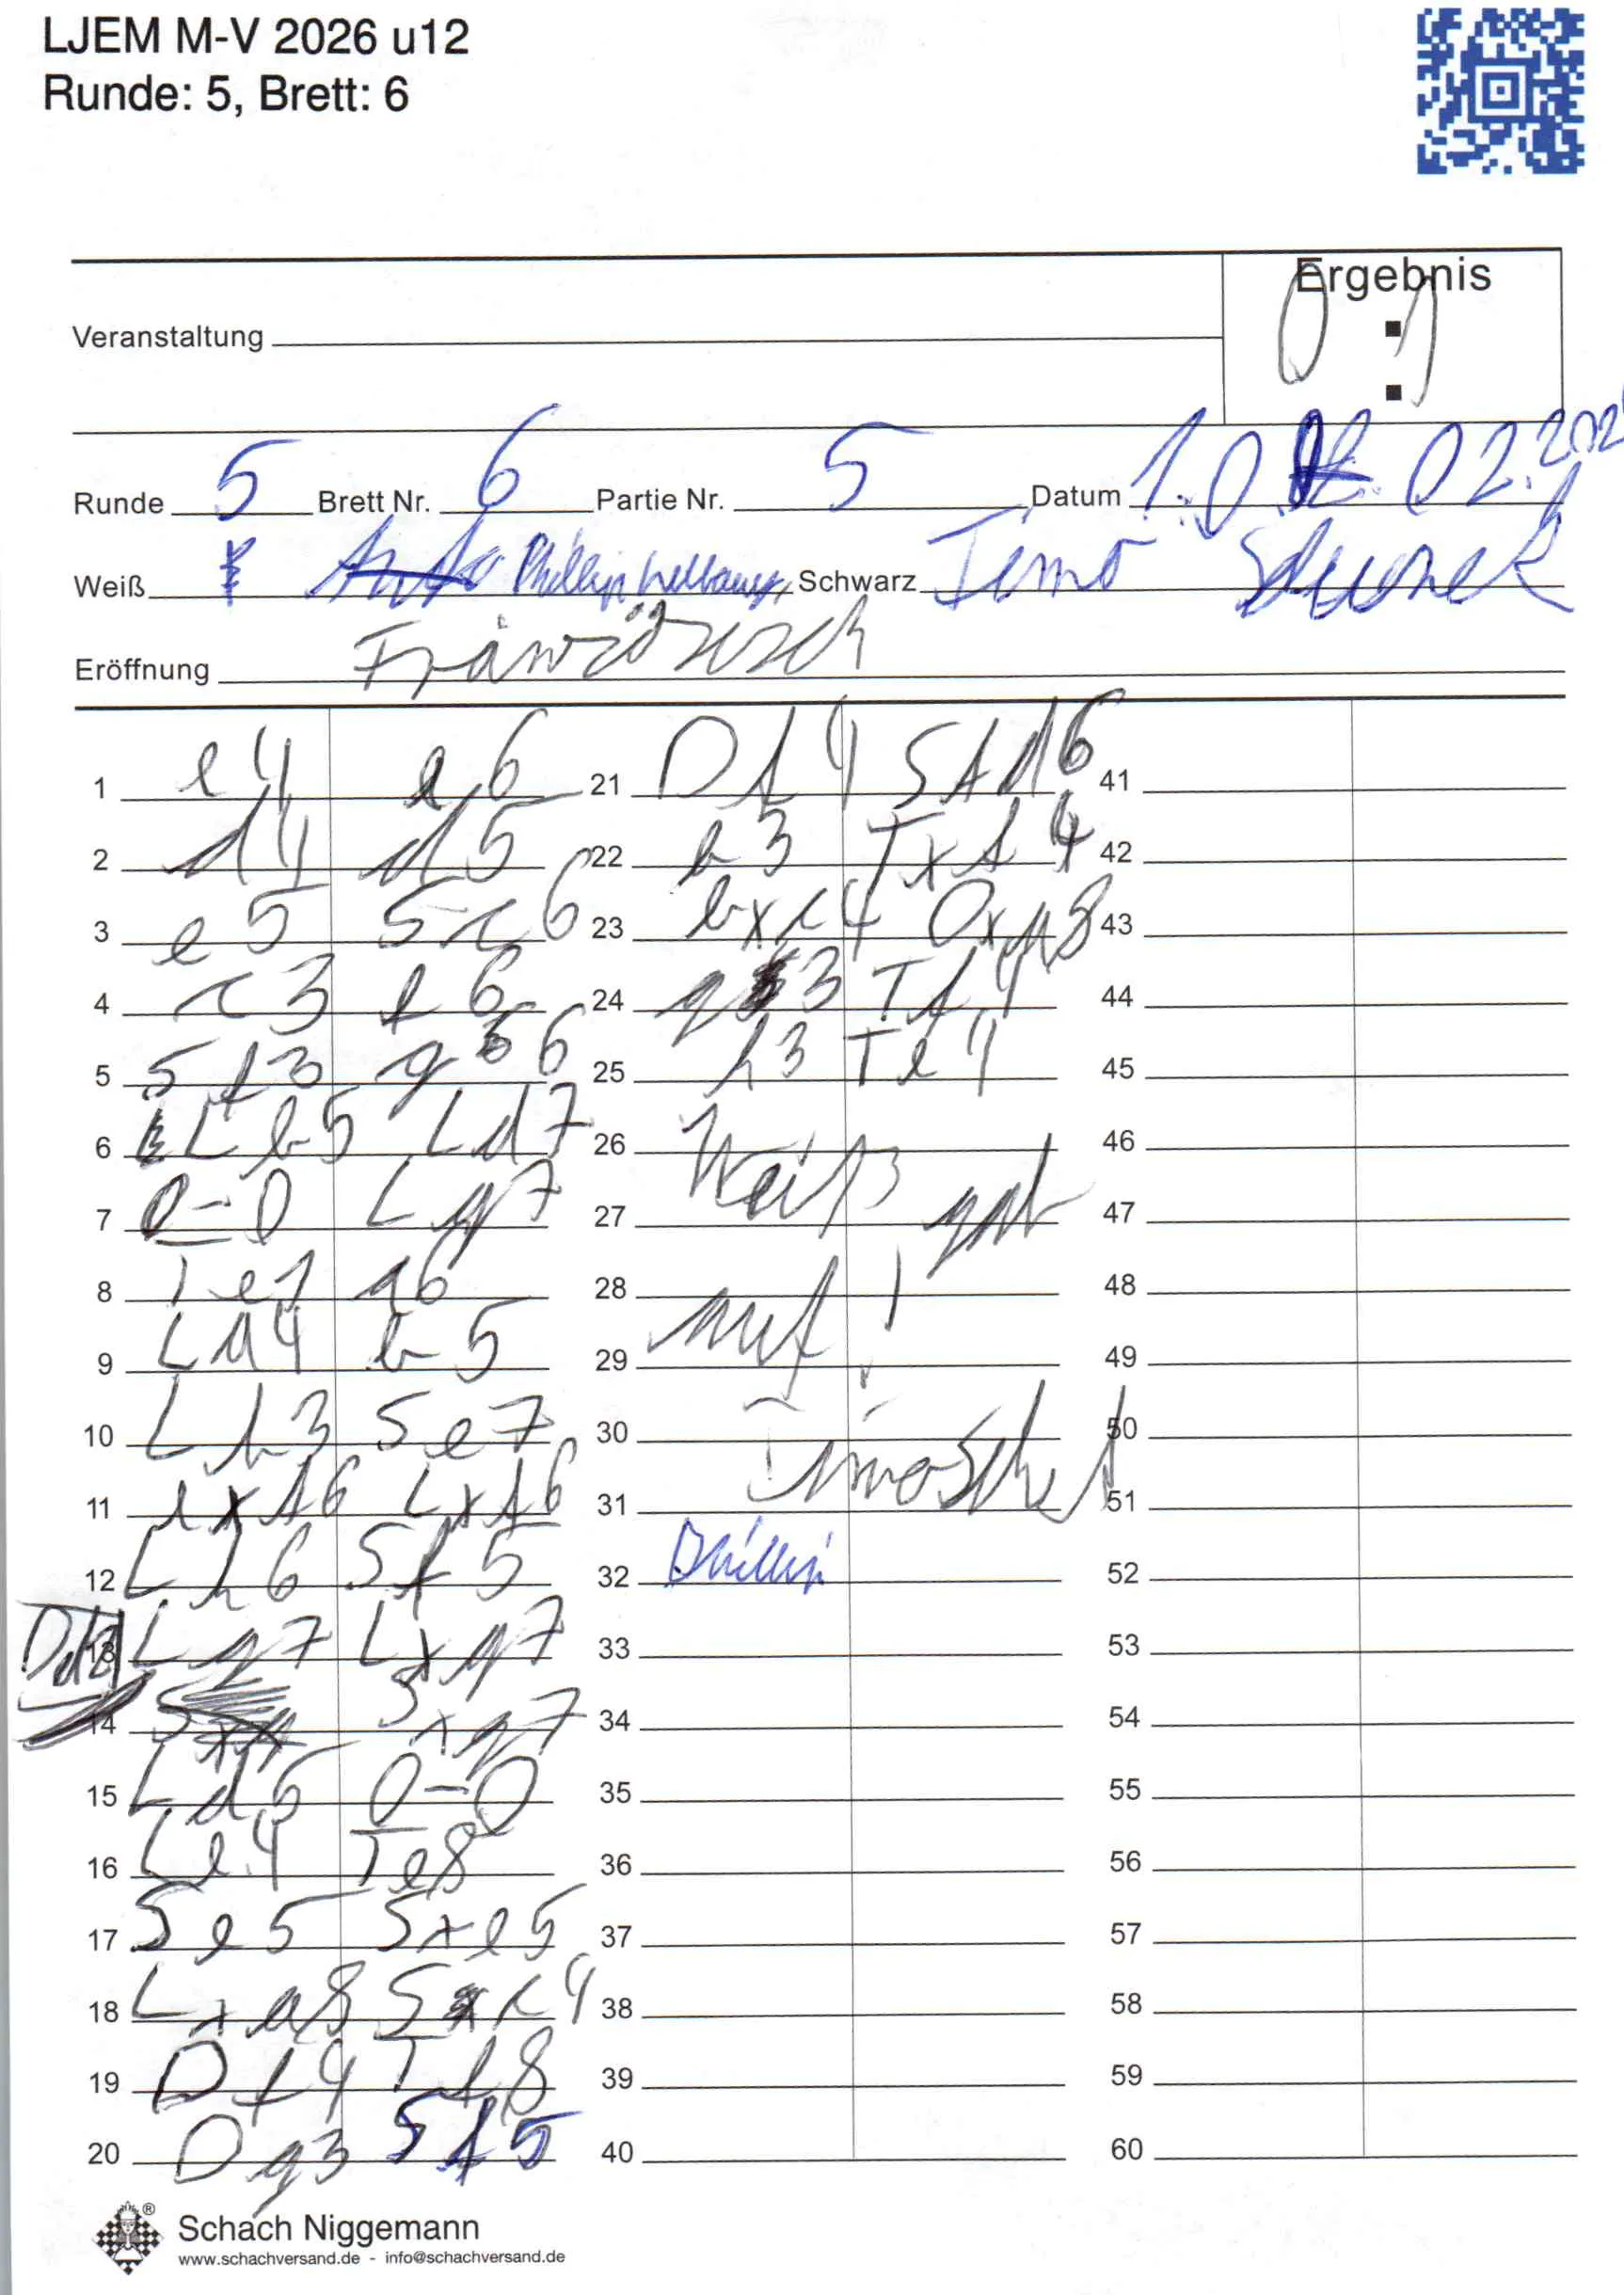 LJEM M-V 2026 u12
Runde: 5, Brett: 6
Ergebnis
0 : 1
Veranstaltung
Runde 5 Brett Nr. 6 Partie Nr. 5 Datum
Weiß Phillip Schwarz Timo
Eröffnung
1 e4 e6 21 Df4 Sfd6 41
2 d4 d5 22 b3 Txf4 42
3 e5 Sc6 23 bxc4 Dxa8 43
4 c3 f6 24 g3 Tf4 44
5 Sf3 g6 25 h3 Te4 45
6 Lb5 Ld7 26 Weiß 46
7 0-0 Lg7 27 gab 47
8 Te1 a6 28 auf! 48
9 La4 b5 29 49
10 Lb3 Se7 30 50
11 exf6 Lxf6 31 51
12 Lh6 Sf5 32 Phillip 52
13 Lg7 Lxg7 33 53
14 Dd2 Sxg7 34 54
15 Ld5 0-0 35 55
16 Le4 Te8 36 56
17 Se5 Sxe5 37 57
18 Lxa8 Sxc4 38 58
19 Df4 Tf8 39 59
20 Dg3 Sf5 40 60
Schach Niggemann
www.schachversand.de - info@schachversand.de